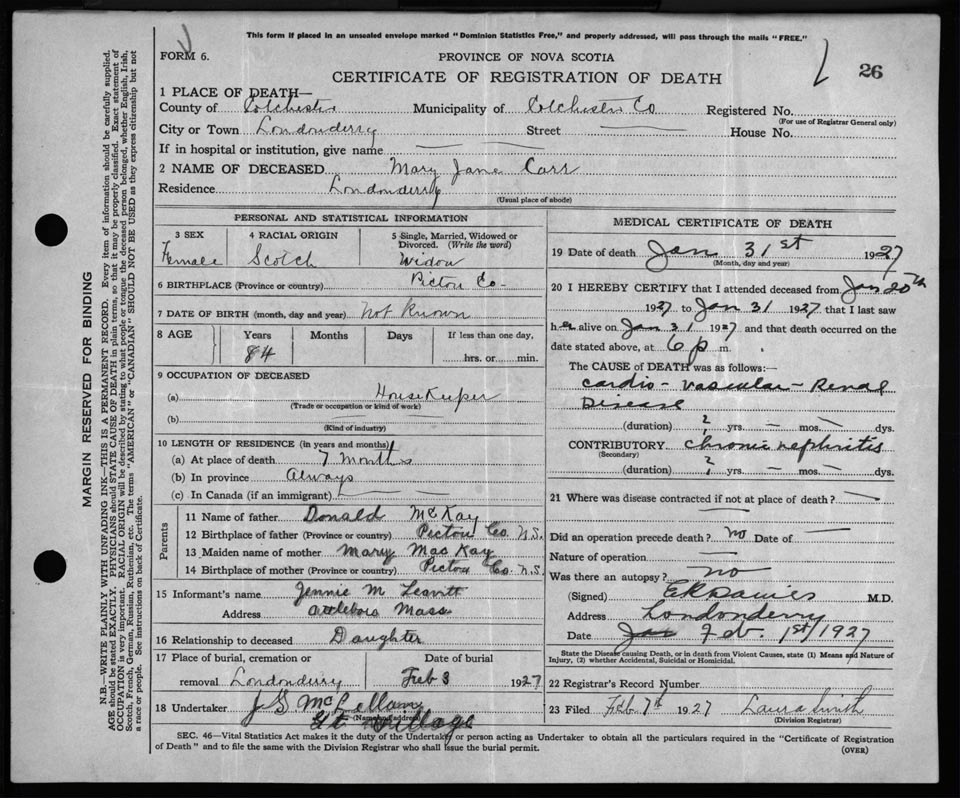 This form if placed in an unsealed envelope marked "Dominion Statistics Free," and properly addressed, will pass through the mails "FREE."
FORM 6.
PROVINCE OF NOVA SCOTIA
CERTIFICATE OF REGISTRATION OF DEATH
26
1 PLACE OF DEATH—
County of Colchester Municipality of Colchester Co Registered No.
(For use of Registrar General only)
City or Town Londonderry Street House No.
If in hospital or institution, give name
2 NAME OF DECEASED Mary Jane Carr
Residence Londonderry
(Usual place of abode)
PERSONAL AND STATISTICAL INFORMATION
3 SEX
Female
4 RACIAL ORIGIN
Scotch
5 Single, Married, Widowed or
Divorced. (Write the word)
Widow
6 BIRTHPLACE (Province or country) Pictou Co
7 DATE OF BIRTH (month, day and year) Not Known
8 AGE Years Months Days If less than one day,
84 hrs. or min.
9 OCCUPATION OF DECEASED
(a) HouseKeeper
(Trade or occupation or kind of work)
(b)
(Kind of industry)
10 LENGTH OF RESIDENCE (in years and months)
(a) At place of death 7 months
(b) In province Always
(c) In Canada (if an immigrant)
Parents
11 Name of father Donald McKay
12 Birthplace of father (Province or country) Pictou Co. N.S.
13 Maiden name of mother Mary MacKay
14 Birthplace of mother (Province or country) Pictou Co. N.S.
15 Informant's name Jennie M Leavitt
Address Attleboro Mass
16 Relationship to deceased Daughter
17 Place of burial, cremation or Date of burial
removal Londonderry Feb 3 1927
18 Undertaker J G McLellan
(Name and address)
Gt Village
MEDICAL CERTIFICATE OF DEATH
19 Date of death Jan 31st 1927
(Month, day and year)
20 I HEREBY CERTIFY that I attended deceased from Jan 20th
1927 to Jan 31 1927 that I last saw
her alive on Jan 31 1927 and that death occurred on the
date stated above, at 6 p m.
The CAUSE of DEATH was as follows:—
Cardio-Vascular-Renal
Disease
(duration) ? yrs. — mos. — dys.
CONTRIBUTORY chronic nephritis
(Secondary)
(duration) ? yrs. — mos. — dys.
21 Where was disease contracted if not at place of death? —
Did an operation precede death? no Date of —
Nature of operation —
Was there an autopsy? no
(Signed) E R Davies M.D.
Address Londonderry
Date Jan Feb. 1st/1927
State the Disease causing Death, or in death from Violent Causes, state (1) Means and Nature of
Injury, (2) whether Accidental, Suicidal or Homicidal.
22 Registrar's Record Number
23 Filed Feb 7th 1927 Laura Smith
(Division Registrar)
SEC. 46—Vital Statistics Act makes it the duty of the Undertaker or person acting as Undertaker to obtain all the particulars required in the "Certificate of Registration
of Death" and to file the same with the Division Registrar who shall issue the burial permit.
(OVER)
MARGIN RESERVED FOR BINDING
N.B.—WRITE PLAINLY WITH UNFADING INK—THIS IS A PERMANENT RECORD. Every item of information should be carefully supplied.
AGE should be stated EXACTLY. PHYSICIANS should STATE CAUSE OF DEATH in plain terms, so that it may be properly classified. Exact statement of
OCCUPATION is very important. RACIAL ORIGIN will be described by stating to what people or tongue the deceased person belonged, whether English, Irish,
Scotch, French, German, Russian, Ruthenian, etc. The terms "AMERICAN" or "CANADIAN" SHOULD NOT BE USED as they express citizenship but not
a race or people. See instructions on back of Certificate.